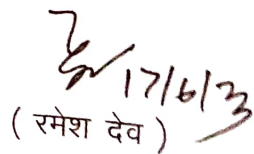 17/6/3
( रमेश देव )